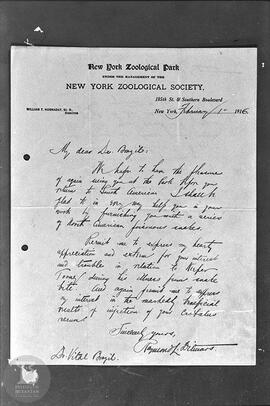 New York Zoological Park
UNDER THE MANAGEMENT OF THE
NEW YORK ZOOLOGICAL SOCIETY.
185th St. & Southern Boulevard
WILLIAM T. HORNADAY, Sc. D.,
DIRECTOR
New York, February 1st 1916
My dear Dr. Brazil:
We hope to have the pleasure
of again seeing you at the Park before your
return to South America. I shall be
glad to in any way help you in your
work by furnishing you with a series
of North American poisonous snakes.
Permit me to express my hearty
appreciation and esteem for your interest
and trouble in relation to Keeper
Toomey during his illness from snake
bite. And again permit me to express
my interest in the markedly beneficial
results of injection of your Crotalus
serum.
Sincerely yours,
Raymond L. Ditmars.
Dr. Vital Brazil.